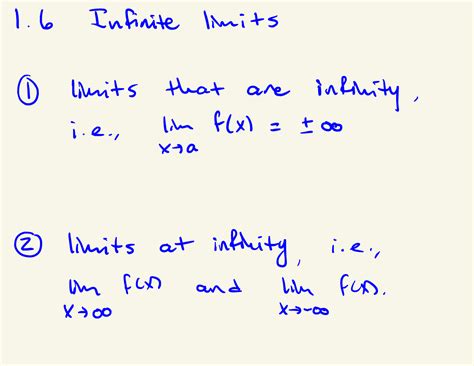 1.6 Infinite limits
① limits that are infinity,
i.e., lim f(x) = ± ∞
x→a
② limits at infinity, i.e.,
lim f(x) and lim f(x).
x→∞ x→-∞